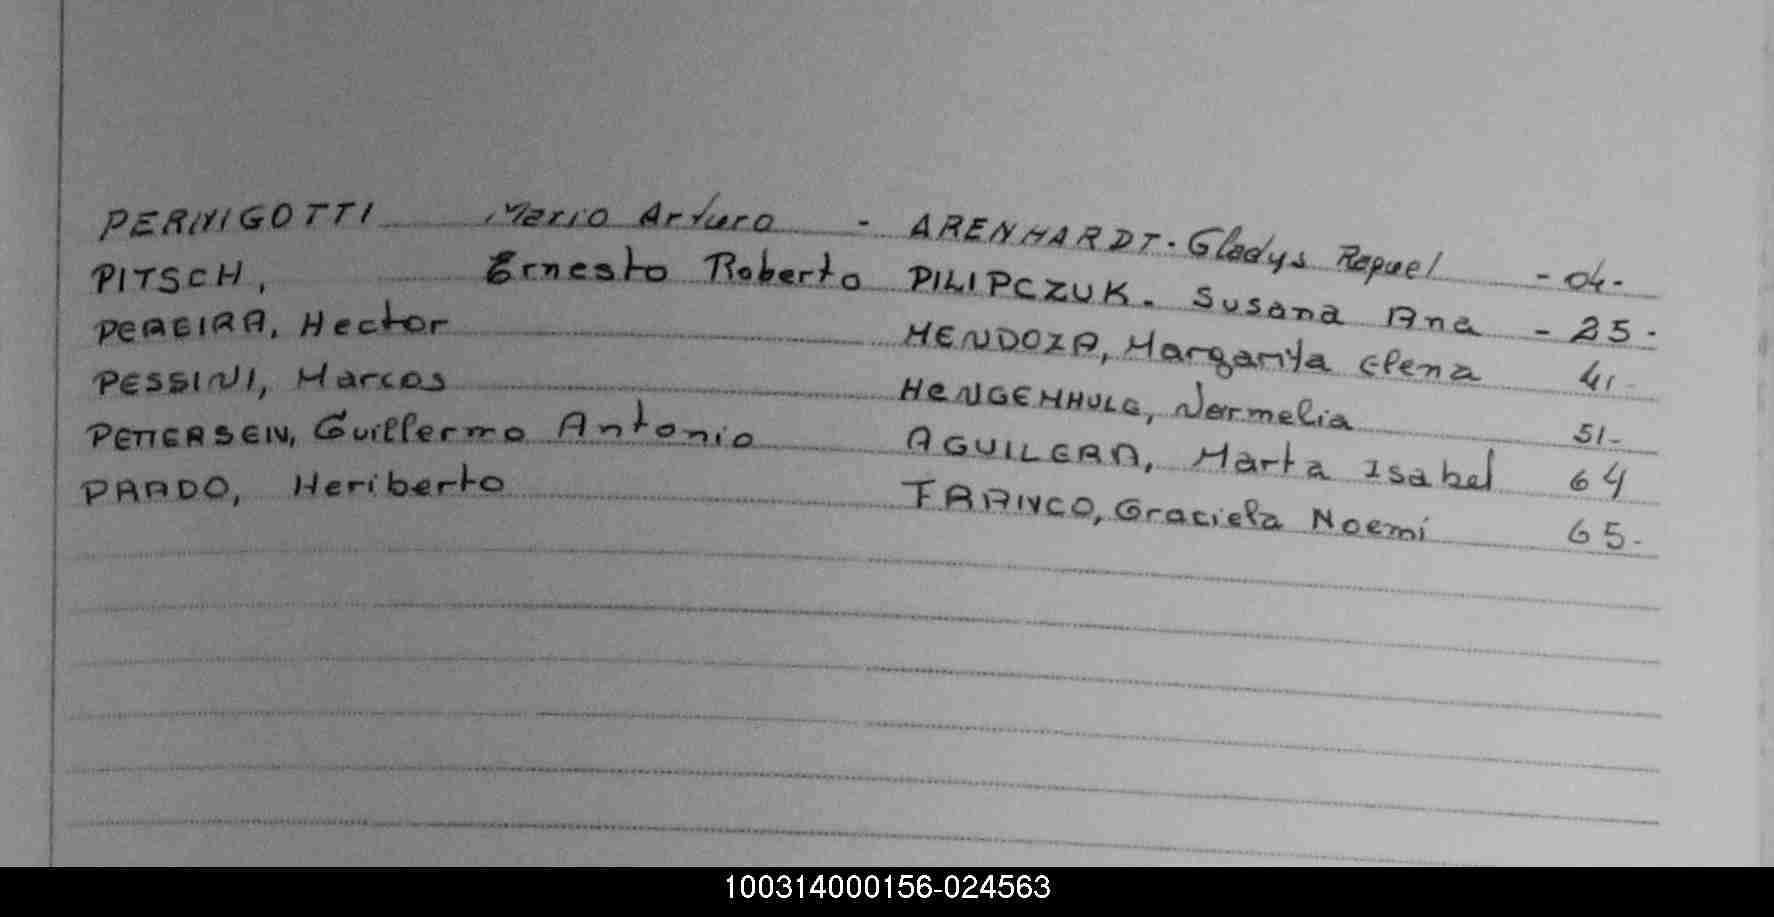 PERNIGOTTI Mario Arturo - ARENHARDT. Gladys Raquel - 04.
PITSCH, Ernesto Roberto PILIPCZUK. Susana Ana - 25.
PEREIRA, Hector MENDOZA, Margarita Elena 41-
PESSINI, Marcos HENGEMHULE, Normelia 51-
PETTERSEN, Guillermo Antonio AGUILERA, Marta Isabel 64
PRADO, Heriberto FRANCO, Graciela Noemí 65-
100314000156-024563